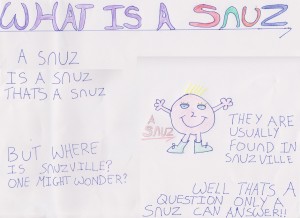 WHAT IS A SNUZ
A SNUZ
IS A SNUZ
THATS A SNUZ
A
SNUZ
THEY ARE
USUALLY
FOUND IN
SNUZVILLE
BUT WHERE
IS SNUZVILLE?
ONE MIGHT WONDER?
WELL THATS A
QUESTION ONLY A
SNUZ CAN ANSWER!!